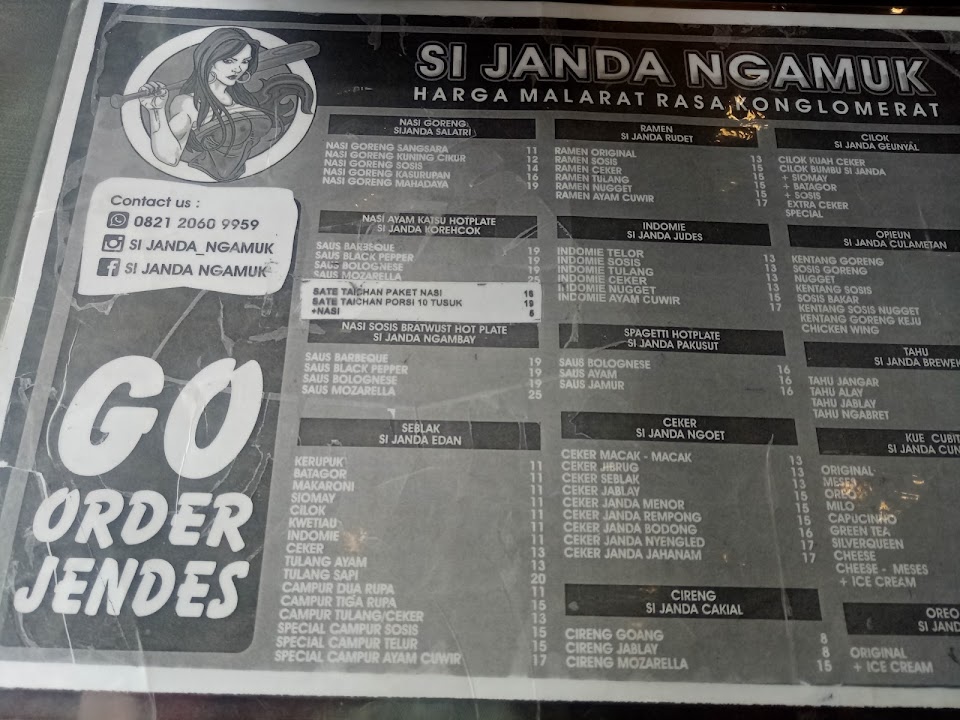 SI JANDA NGAMUK
HARGA MALARAT RASA KONGLOMERAT
Contact us :
0821 2060 9959
SI JANDA_NGAMUK
SI JANDA NGAMUK
GO
ORDER
JENDES
NASI GORENG
SIJANDA SALATRI
NASI GORENG SANGSARA 11
NASI GORENG KUNING CIKUR 12
NASI GORENG SOSIS 14
NASI GORENG KASURUPAN 16
NASI GORENG MAHADAYA 19
NASI AYAM KATSU HOTPLATE
SI JANDA KOREHCOK
SAUS BARBEQUE 19
SAUS BLACK PEPPER 19
SAUS BOLOGNESE 19
SAUS MOZARELLA 25
SATE TAICHAN PAKET NASI 16
SATE TAICHAN PORSI 10 TUSUK 19
+NASI 5
NASI SOSIS BRATWUST HOT PLATE
SI JANDA NGAMBAY
SAUS BARBEQUE 19
SAUS BLACK PEPPER 19
SAUS BOLOGNESE 19
SAUS MOZARELLA 25
SEBLAK
SI JANDA EDAN
KERUPUK
BATAGOR
MAKARONI
SIOMAY
CILOK
KWETIAU
INDOMIE
CEKER
TULANG AYAM
TULANG SAPI
CAMPUR DUA RUPA
CAMPUR TIGA RUPA
CAMPUR TULANG/CEKER
SPECIAL CAMPUR SOSIS
SPECIAL CAMPUR TELUR
SPECIAL CAMPUR AYAM CUWIR
11
11
11
11
11
11
11
13
13
20
11
15
13
15
15
17
RAMEN
SI JANDA RUDET
RAMEN ORIGINAL
RAMEN SOSIS
RAMEN CEKER
RAMEN TULANG
RAMEN NUGGET
RAMEN AYAM CUWIR
13
15
15
15
17
INDOMIE
SI JANDA JUDES
INDOMIE TELOR
INDOMIE SOSIS
INDOMIE TULANG
INDOMIE CEKER
INDOMIE NUGGET
INDOMIE AYAM CUWIR
13
13
15
15
17
SPAGETTI HOTPLATE
SI JANDA PAKUSUT
SAUS BOLOGNESE 16
SAUS AYAM 16
SAUS JAMUR 16
CEKER
SI JANDA NGOET
CEKER MACAK - MACAK
CEKER JIBRUG
CEKER SEBLAK
CEKER JABLAY
CEKER JANDA MENOR
CEKER JANDA REMPONG
CEKER JANDA BODONG
CEKER JANDA NYENGLED
CEKER JANDA JAHANAM
13
13
13
15
15
15
16
17
17
CIRENG
SI JANDA CAKIAL
CIRENG GOANG 8
CIRENG JABLAY 8
CIRENG MOZARELLA 15
CILOK
SI JANDA GEUNYAL
CILOK KUAH CEKER
CILOK BUMBU SI JANDA
+ SIOMAY
+ BATAGOR
+ SOSIS
EXTRA CEKER
SPECIAL
OPIEUN
SI JANDA CULAMETAN
KENTANG GORENG
SOSIS GORENG
NUGGET
KENTANG SOSIS
SOSIS BAKAR
KENTANG SOSIS NUGGET
KENTANG GORENG KEJU
CHICKEN WING
TAHU
SI JANDA BREWEK
TAHU JANGAR
TAHU ALAY
TAHU JABLAY
TAHU NGABRET
KUE CUBIT
SI JANDA CUN
ORIGINAL
MESES
OREO
MILO
CAPUCINNO
GREEN TEA
SILVERQUEEN
CHEESE
CHEESE - MESES
+ ICE CREAM
OREO
SI JAND
ORIGINAL
+ ICE CREAM